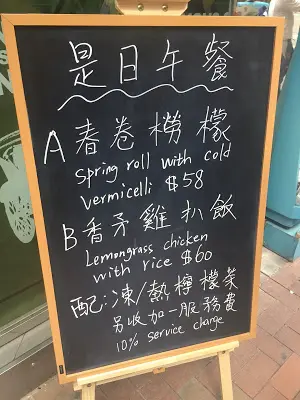 是日午餐
A 春卷撈檬
spring roll with cold
vermicelli $58
B 香茅雞扒飯
Lemongrass chicken
with rice $60
配:凍/熱檸檬茶
另收加一服務費
10% service charge